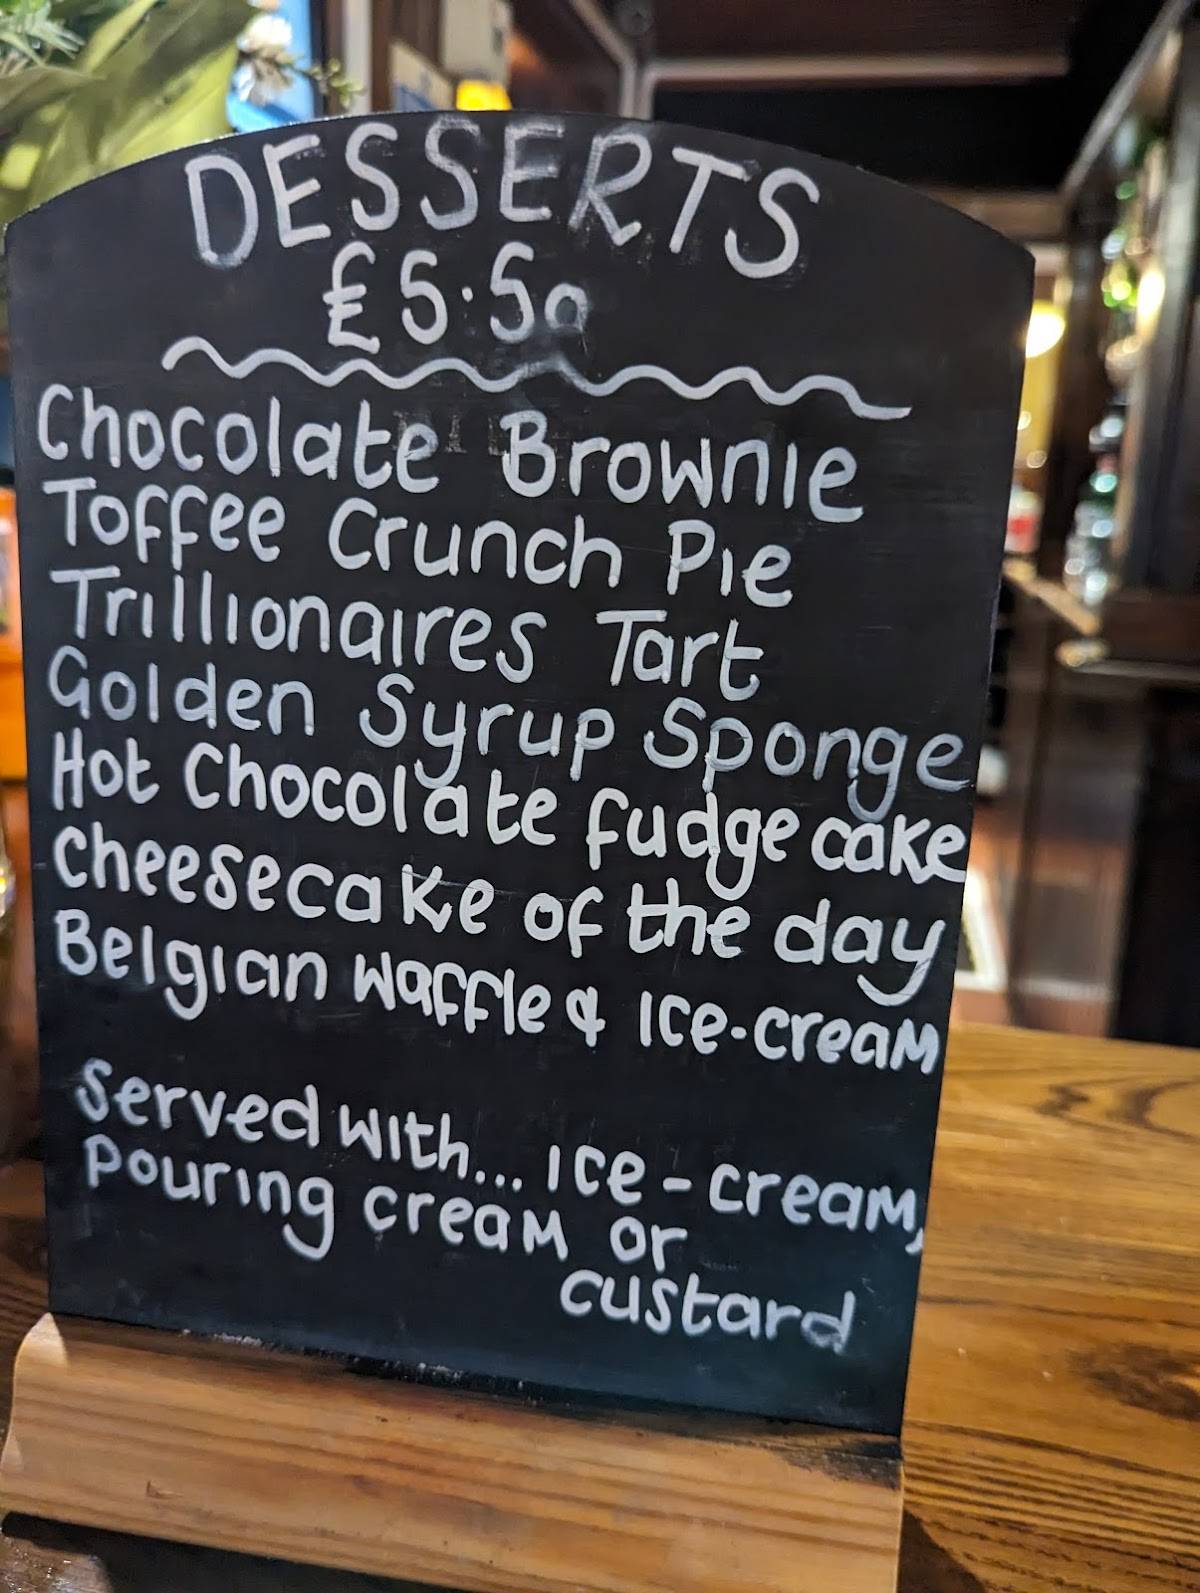 DESSERTS
£5.50
Chocolate Brownie
Toffee Crunch Pie
Trillionaires Tart
Golden Syrup Sponge
Hot Chocolate fudge cake
Cheesecake of the day
Belgian Waffle & Ice-cream
Served with... ice-cream,
pouring cream or
custard